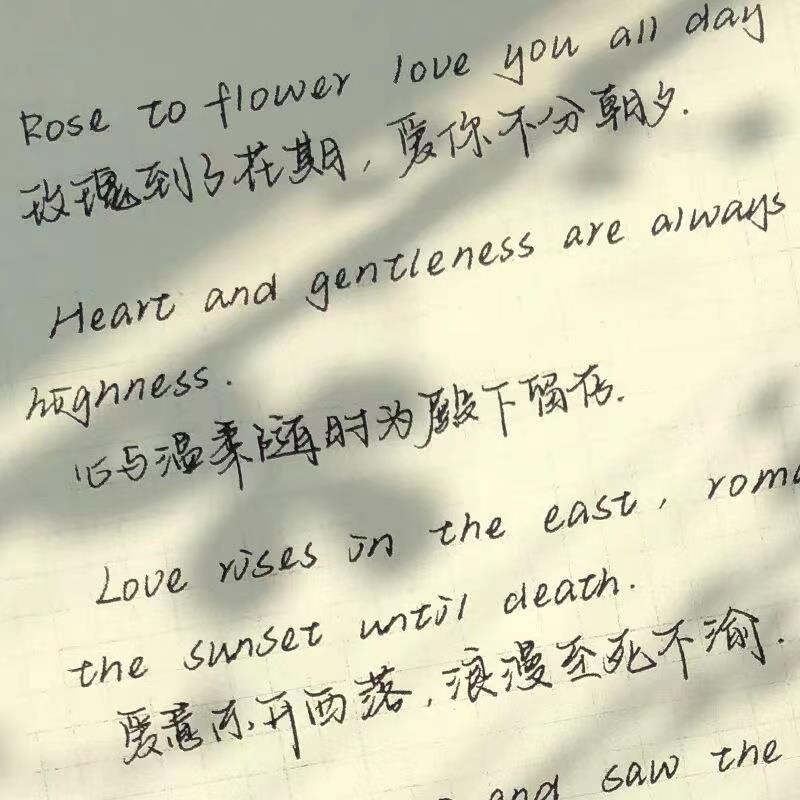 Rose to flower love you all day
玫瑰到了花期，爱你不分朝夕.
Heart and gentleness are always
highness.
心与温柔随时为殿下留存.
Love rises in the east, roma
the sunset until death.
爱意东升西落，浪漫至死不渝.
and saw the